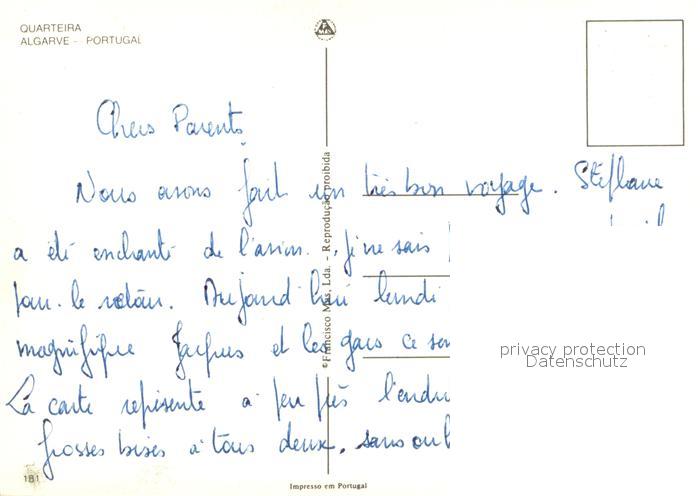 QUARTEIRA
ALGARVE - PORTUGAL
Chers Parents,
Nous avons fait un très bon voyage. Stéphane
a été enchanté de l'avion. , je ne sais
pour le retour. Aujourd'hui lundi
magnifique Jacques et les gars ce
La carte représente à peu près l'endr
grosses bises à tous deux, sans oub
©Francisco Mas, Lda. - Reprodução proibida
privacy protection
Datenschutz
181
Impresso em Portugal